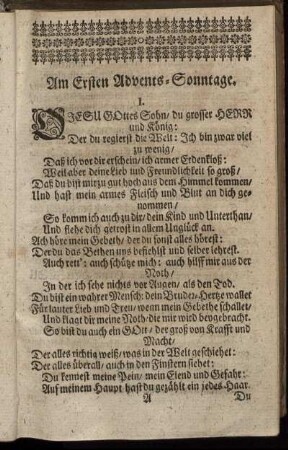 Am Ersten Advents-Sonntage.
I.
O JESU GOttes Sohn/ du grosser HERR
und König:
Der du regierst die Welt: Ich bin zwar viel
zu wenig/
Daß ich vor dir erschein/ ich armer Erdenkloß:
Weil aber deine Lieb und Freundlichkeit so groß/
Daß du bist mir zu gut hoch aus dem Himmel kommen/
Und hast mein armes Fleisch und Blut an dich ge-
nommen/
So komm ich auch zu dir/ dein Kind und Unterthan/
Und flehe dich getrost in allem Unglück an.
Ach höre mein Gebeth/ der du sonst alles hörest:
Der du das Bethen uns befihlst und selber lehrest.
Auch rett': auch schütze mich: auch hilff mir aus der
Noth/
In der ich sehe nichts vor Augen/ als den Tod.
Du bist ein wahrer Mensch: dein Bruder-Hertze wallet
Für lauter Lieb und Treu/ wenn mein Gebethe schallet/
Und klagt dir meine Noth die mir wird beygebracht.
So bist du auch ein GOtt/ der groß von Krafft und
Macht/
Der alles richtig weiß/ was in der Welt geschiehet:
Der alles überall/ auch in den Finstern siehet:
Du kennest meine Pein/ mein Elend und Gefahr:
Auf meinem Haupt hast du gezählt ein jedes Haar.
A Du